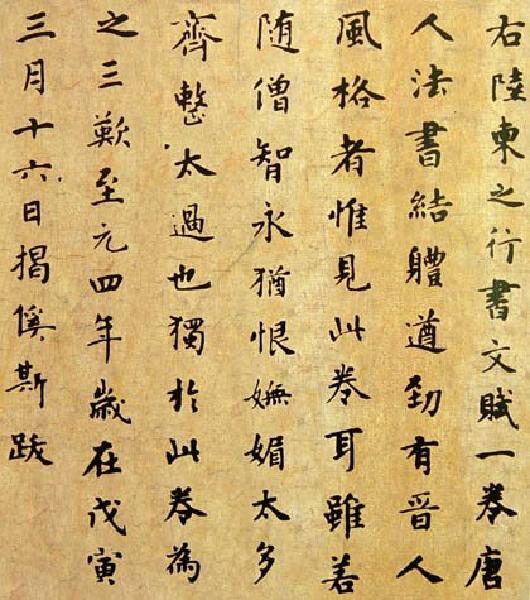 右陸東之行書文賦一卷唐
人法書結軆遒勁有晉人
風格者惟見此卷耳雖若
随僧智永猶恨嫵媚太多
齊整太過也獨於此卷為
之三歎至元四年歲在戊寅
三月十六日揭傒斯跋